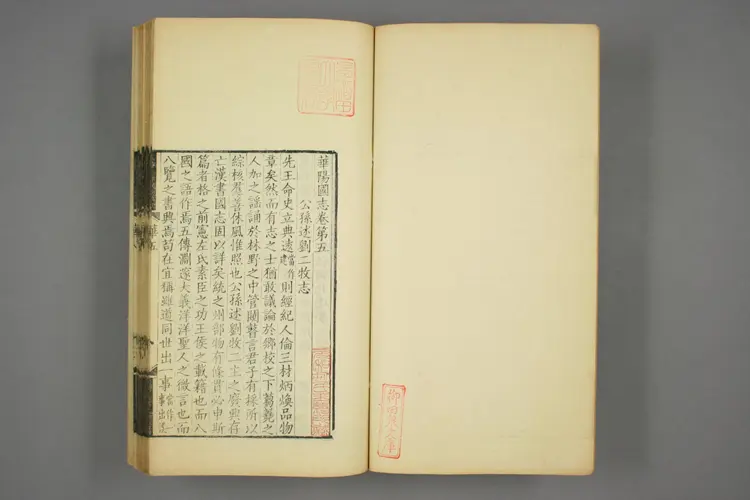 華陽國志卷第五
公孫述劉二牧志
先王命史立典建當作建則經紀人倫三材炳煥品物
章矣然而有志之士猶敢議論於鄉校之下蒭蕘之
人加之謠誦於林野之中管闚瞽言君子有採所以
綜核羣善休風惟照也公孫述劉牧二主之廢興存
亡漢書國志固以詳矣統之州部物有條貫必申斯
篇者格之前憲左氏素臣之功王侯之載籍也而八
國之語作焉五傳淵邃大義洋洋聖人之微言也而
八覽之書興焉苟在宜稱雖道同世出一事當作一事出